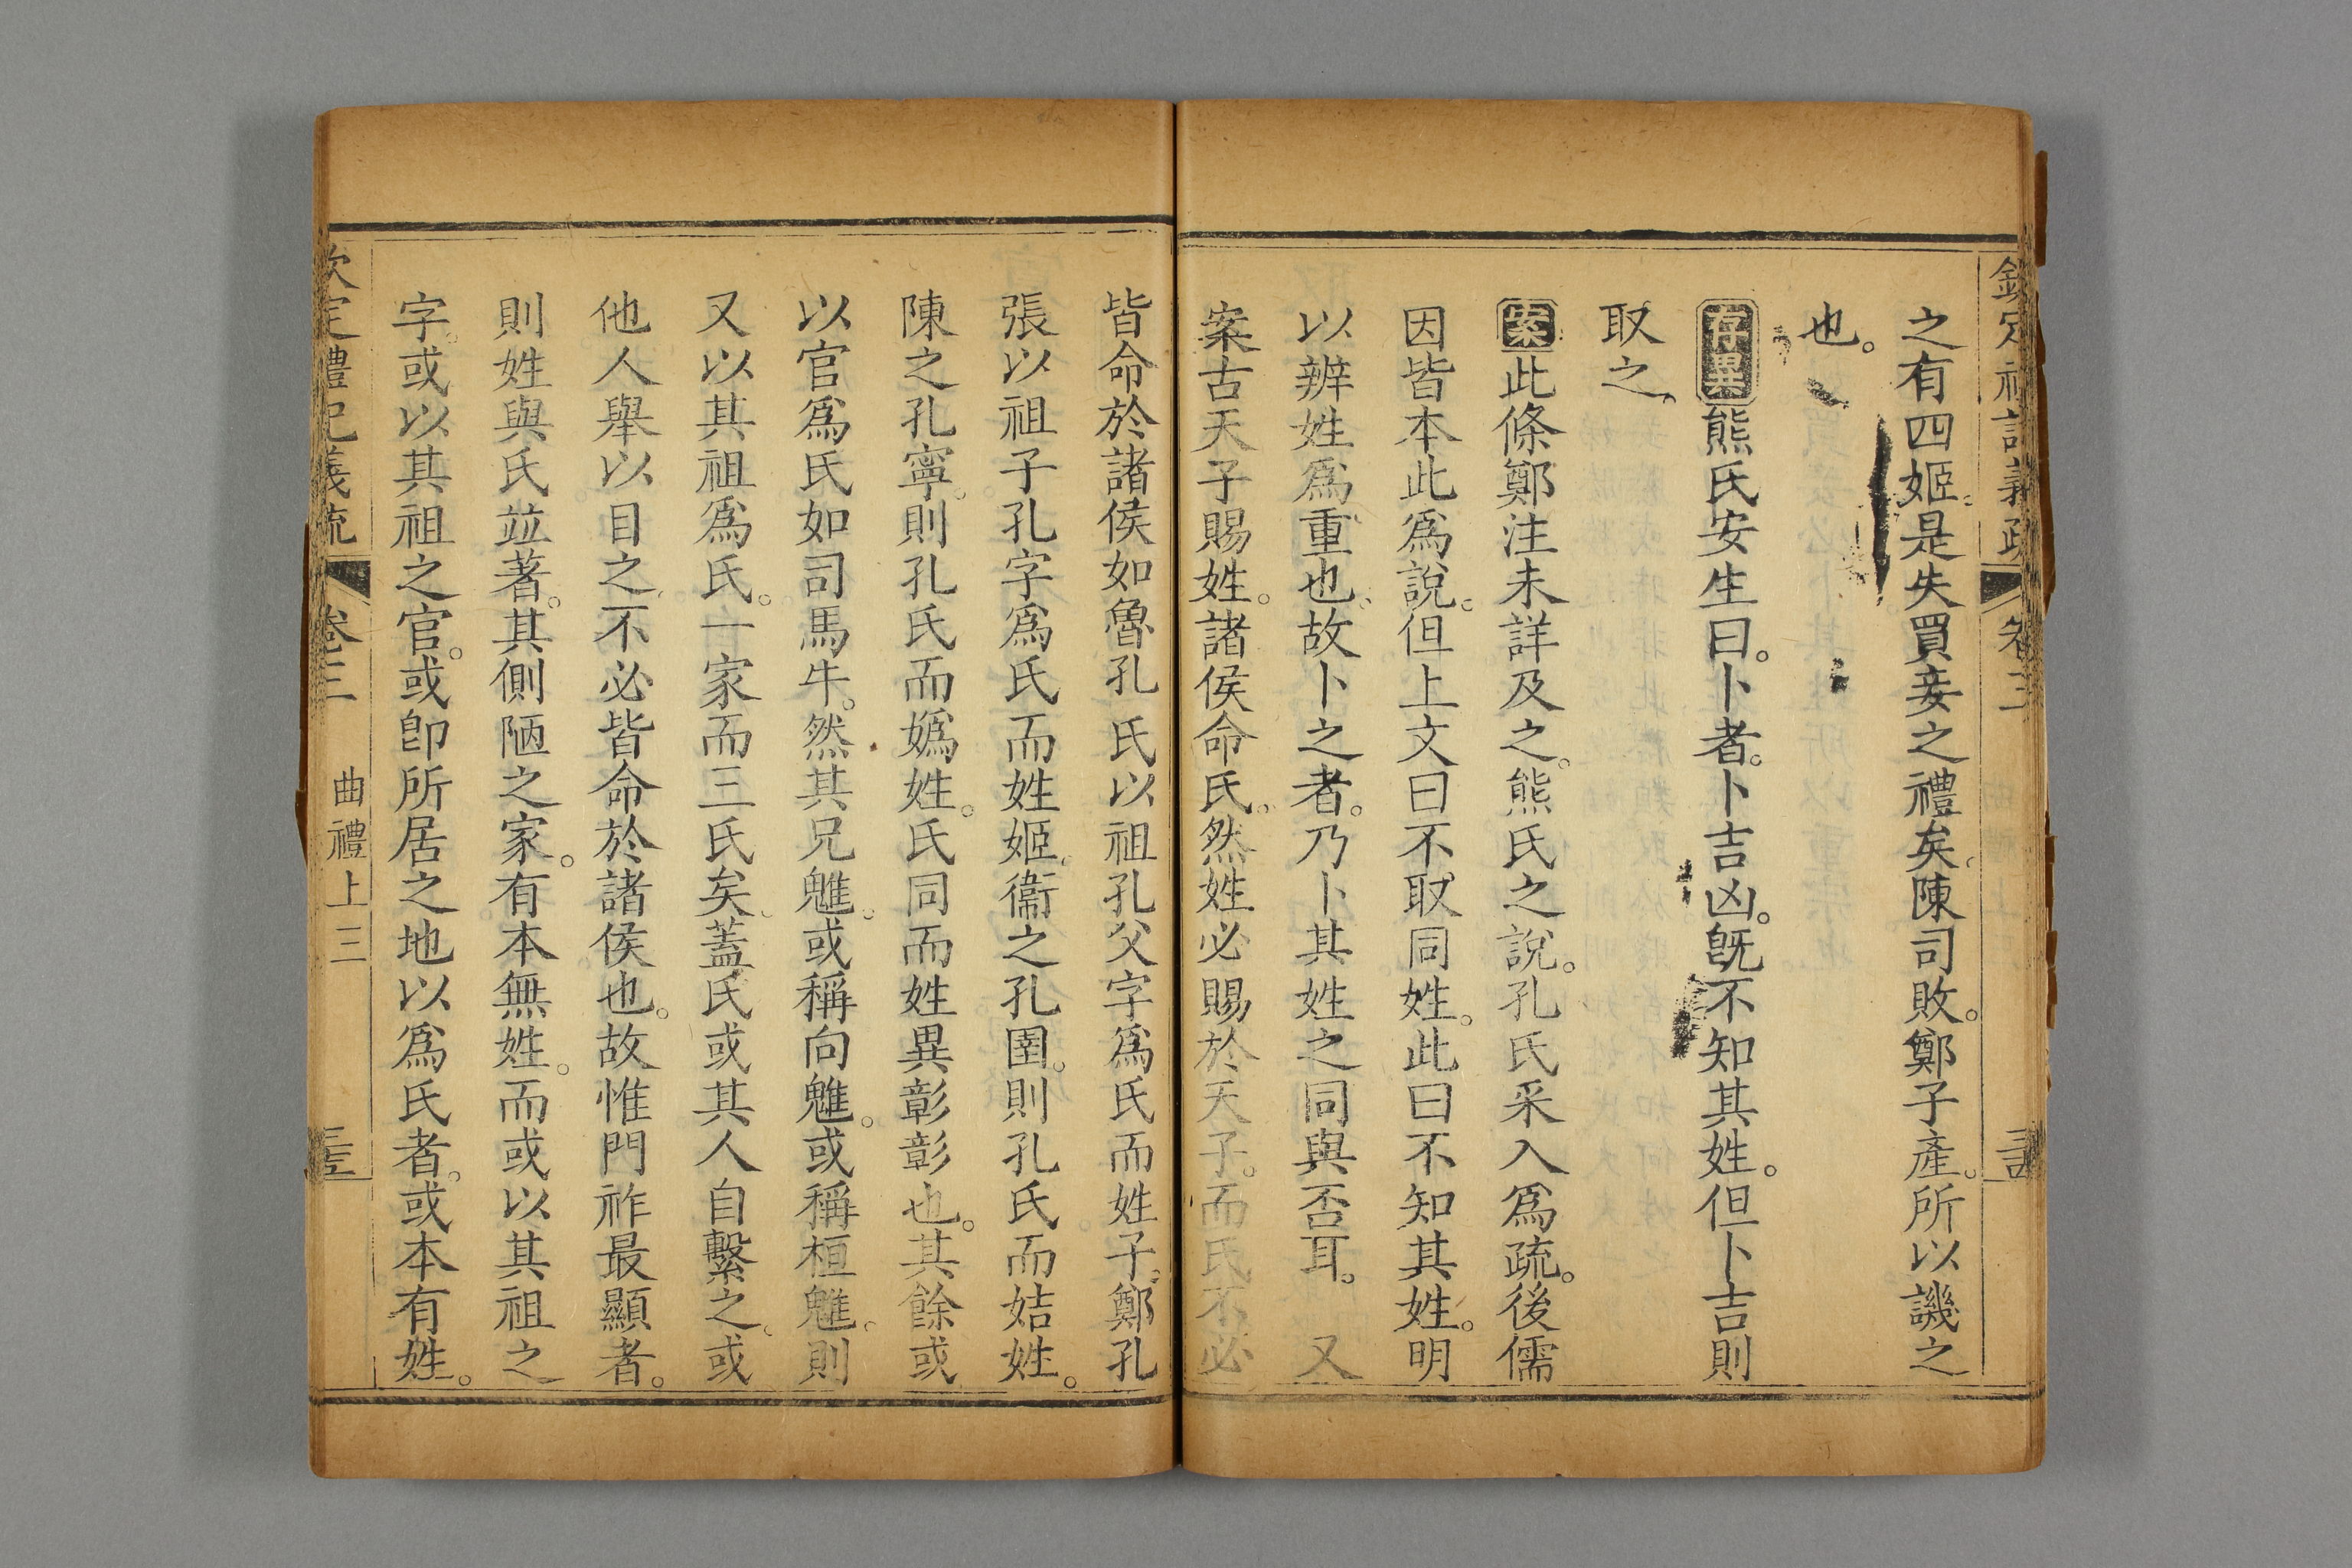 欽定禮記義疏 卷三
之有四姬是失買妾之禮矣陳司敗鄭子產所以譏之
也
存異熊氏安生曰卜者卜吉凶旣不知其姓但卜吉則
取之
案此條鄭注未詳及之熊氏之說孔氏采入爲疏後儒
因皆本此爲說但上文曰不取同姓此曰不知其姓明
以辨姓爲重也故卜之者乃卜其姓之同與否耳 又
案古天子賜姓諸侯命氏然姓必賜於天子而氏不必
皆命於諸侯如魯孔氏以祖孔父字爲氏而姓子鄭孔
張以祖子孔字爲氏而姓姬衞之孔圉則孔氏而姞姓
陳之孔寧則孔氏而嬀姓氏同而姓異彰彰也其餘或
以官爲氏如司馬牛然其兄魋或稱向魋或稱桓魋則
又以其祖爲氏一家而三氏矣蓋氏或其人自繫之或
他人舉以目之不必皆命於諸侯也故惟門祚最顯者
則姓與氏竝著其側陋之家有本無姓而或以其祖之
字或以其祖之官或卽所居之地以爲氏者或本有姓
欽定禮記義疏 卷三 曲禮上三